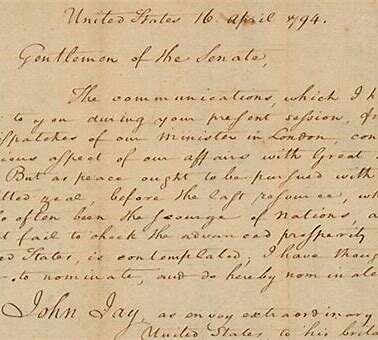 United States 16 April 1794.
Gentlemen of the Senate,
The communications, which I h
to you during your present session, f
ispatches of our minister in London, con
ious aspect of our affairs with Great
But as peace ought to be pursued with
tted zeal, before the last resource, wh
o often been the scourge of nations, a
t fail to check the advanced prosperity
ed States, is contemplated; I have thoug
to nominate, and do hereby nomina
John Jay, as envoy extraordinary
United States, to his brita